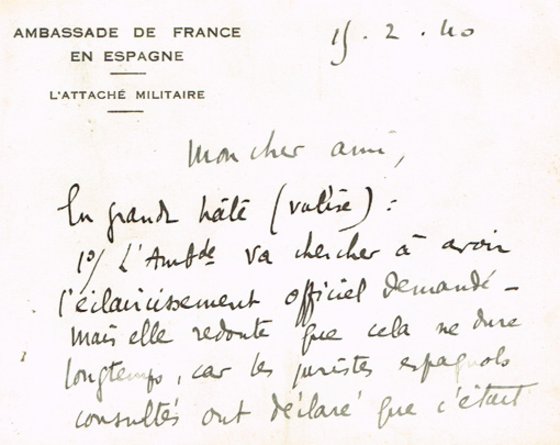 AMBASSADE DE FRANCE
EN ESPAGNE
L'ATTACHÉ MILITAIRE
15. 2. 40
Mon cher ami,
En grande hâte (valise) :
1º/ L'Ambde va chercher à avoir
l'éclaircissement officiel demandé -
mais elle redoute que cela ne dure
longtemps, car les juristes espagnols
consultés ont déclaré que c'était